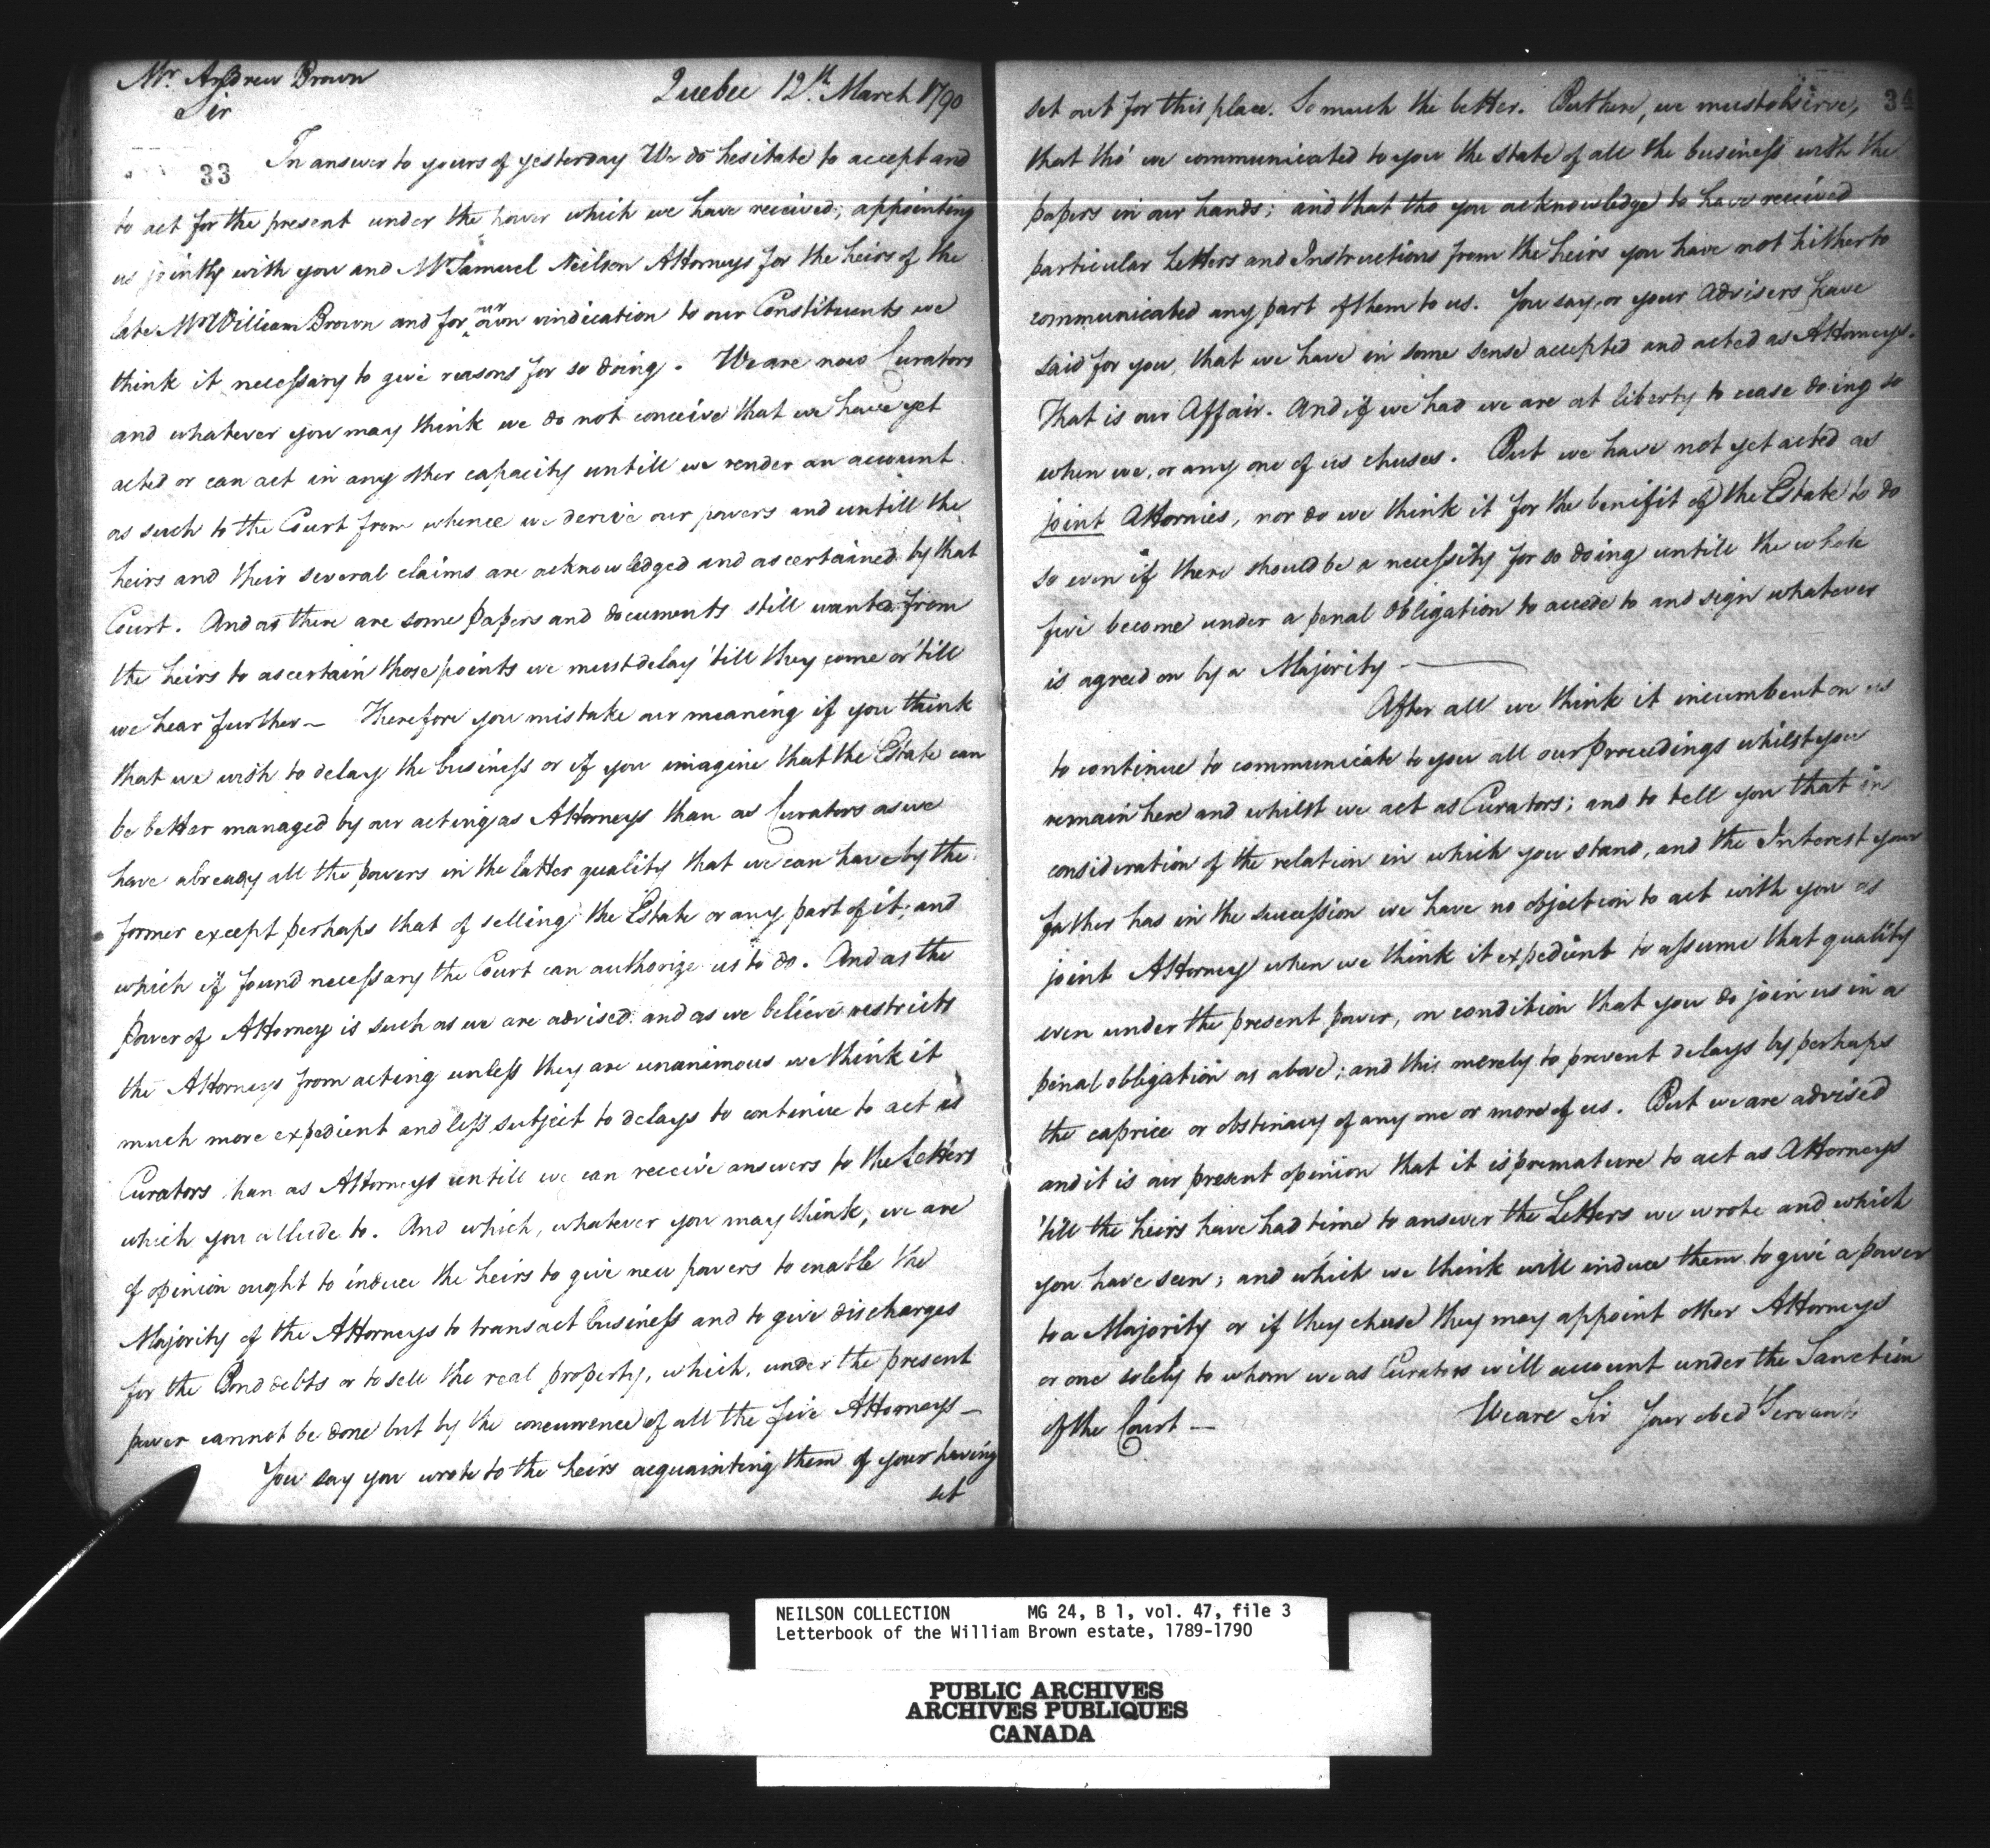 Mr. Andrew Brown
Quebec 12th March 1790
Sir
33
In answer to yours of yesterday We do hesitate to accept and
to act for the present under the power which we have received; appointing
us jointly with you and Mr Samuel Neilson Attorneys for the heirs of the
late Mr William Brown and for our own vindication to our Constituents we
think it necessary to give reasons for so doing. We are now Curators
and whatever you may think we do not conceive that we have yet
acted or can act in any other capacity untill we render an account
as such to the Court from whence we derive our powers and untill the
heirs and their several claims are acknowledged and ascertained by that
Court. And as there are some papers and documents still wanted from
the heirs to ascertain those points we must delay 'till they come or 'till
we hear further — Therefore you mistake our meaning if you think
that we wish to delay the business or if you imagine that the Estate can
be better managed by our acting as Attorneys than as Curators as we
have already all the powers in the latter quality that we can have by the
former except perhaps that of selling the Estate or any part of it; and
which if found necessary the Court can authorize us to do. And as the
Power of Attorney is such as we are advised and as we believe restricts
the Attorneys from acting unless they are unanimous we think it
much more expedient and less subject to delays to continue to act as
Curators than as Attorneys untill we can receive answers to the Letters
which you allude to. And which, whatever you may think, we are
of opinion ought to induce the heirs to give new powers to enable the
Majority of the Attorneys to transact business and to give discharges
for the Bond debts or to sell the real property, which, under the present
power cannot be done but by the concurrence of all the five Attorneys —
You say you wrote to the heirs acquainting them of your having
set
34
set out for this place. So much the better. But here, we must observe,
that tho' we communicated to you the state of all the business with the
papers in our hands; and that tho you acknowledge to have received
particular Letters and Instructions from the heirs you have not hitherto
communicated any part of them to us. You say, or your Advisers have
said for you, that we have in some sense accepted and acted as Attorneys.
That is our Affair. And if we had we are at liberty to cease doing so
when we, or any one of us chuses. But we have not yet acted as
joint Attornies, nor do we think it for the benifit of the Estate to do
so even if there should be a necessity for so doing untill the whole
five become under a penal Obligation to accede to and sign whatever
is agreed on by a Majority. —
After all we think it incumbent on us
to continue to communicate to you all our Proceedings whilst you
remain here and whilst we act as Curators; and to tell you that in
consideration of the relation in which you stand, and the Interest your
father has in the succession we have no objection to act with you as
joint Attorney when we think it expedient to assume that quality
even under the present power, on condition that you do join us in a
penal obligation as above; and this merely to prevent delays by perhaps
the caprice or obstinacy of any one or more of us. But we are advised
and it is our present opinion that it is premature to act as Attorneys
'till the heirs have had time to answer the Letters we wrote and which
you have seen; and which we think will induce them to give a power
to a Majority or if they chuse they may appoint other Attorneys
or one solely to whom we as Curators will account under the Sanction
of the Court —
We are Sir Your obed Servants
NEILSON COLLECTION MG 24, B 1, vol. 47, file 3
Letterbook of the William Brown estate, 1789-1790
PUBLIC ARCHIVES
ARCHIVES PUBLIQUES
CANADA